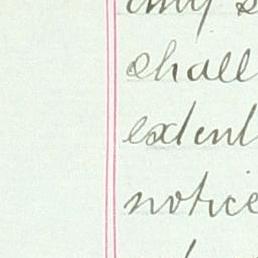 any s
shall
extent
notice